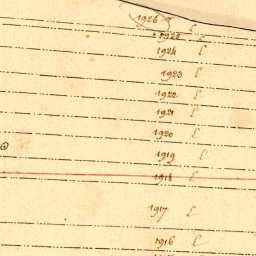 1926
1925
1924 L
1923 L
1922 L
1921 L
1920 L
1919 L
1918 L
1917 L
1916 L